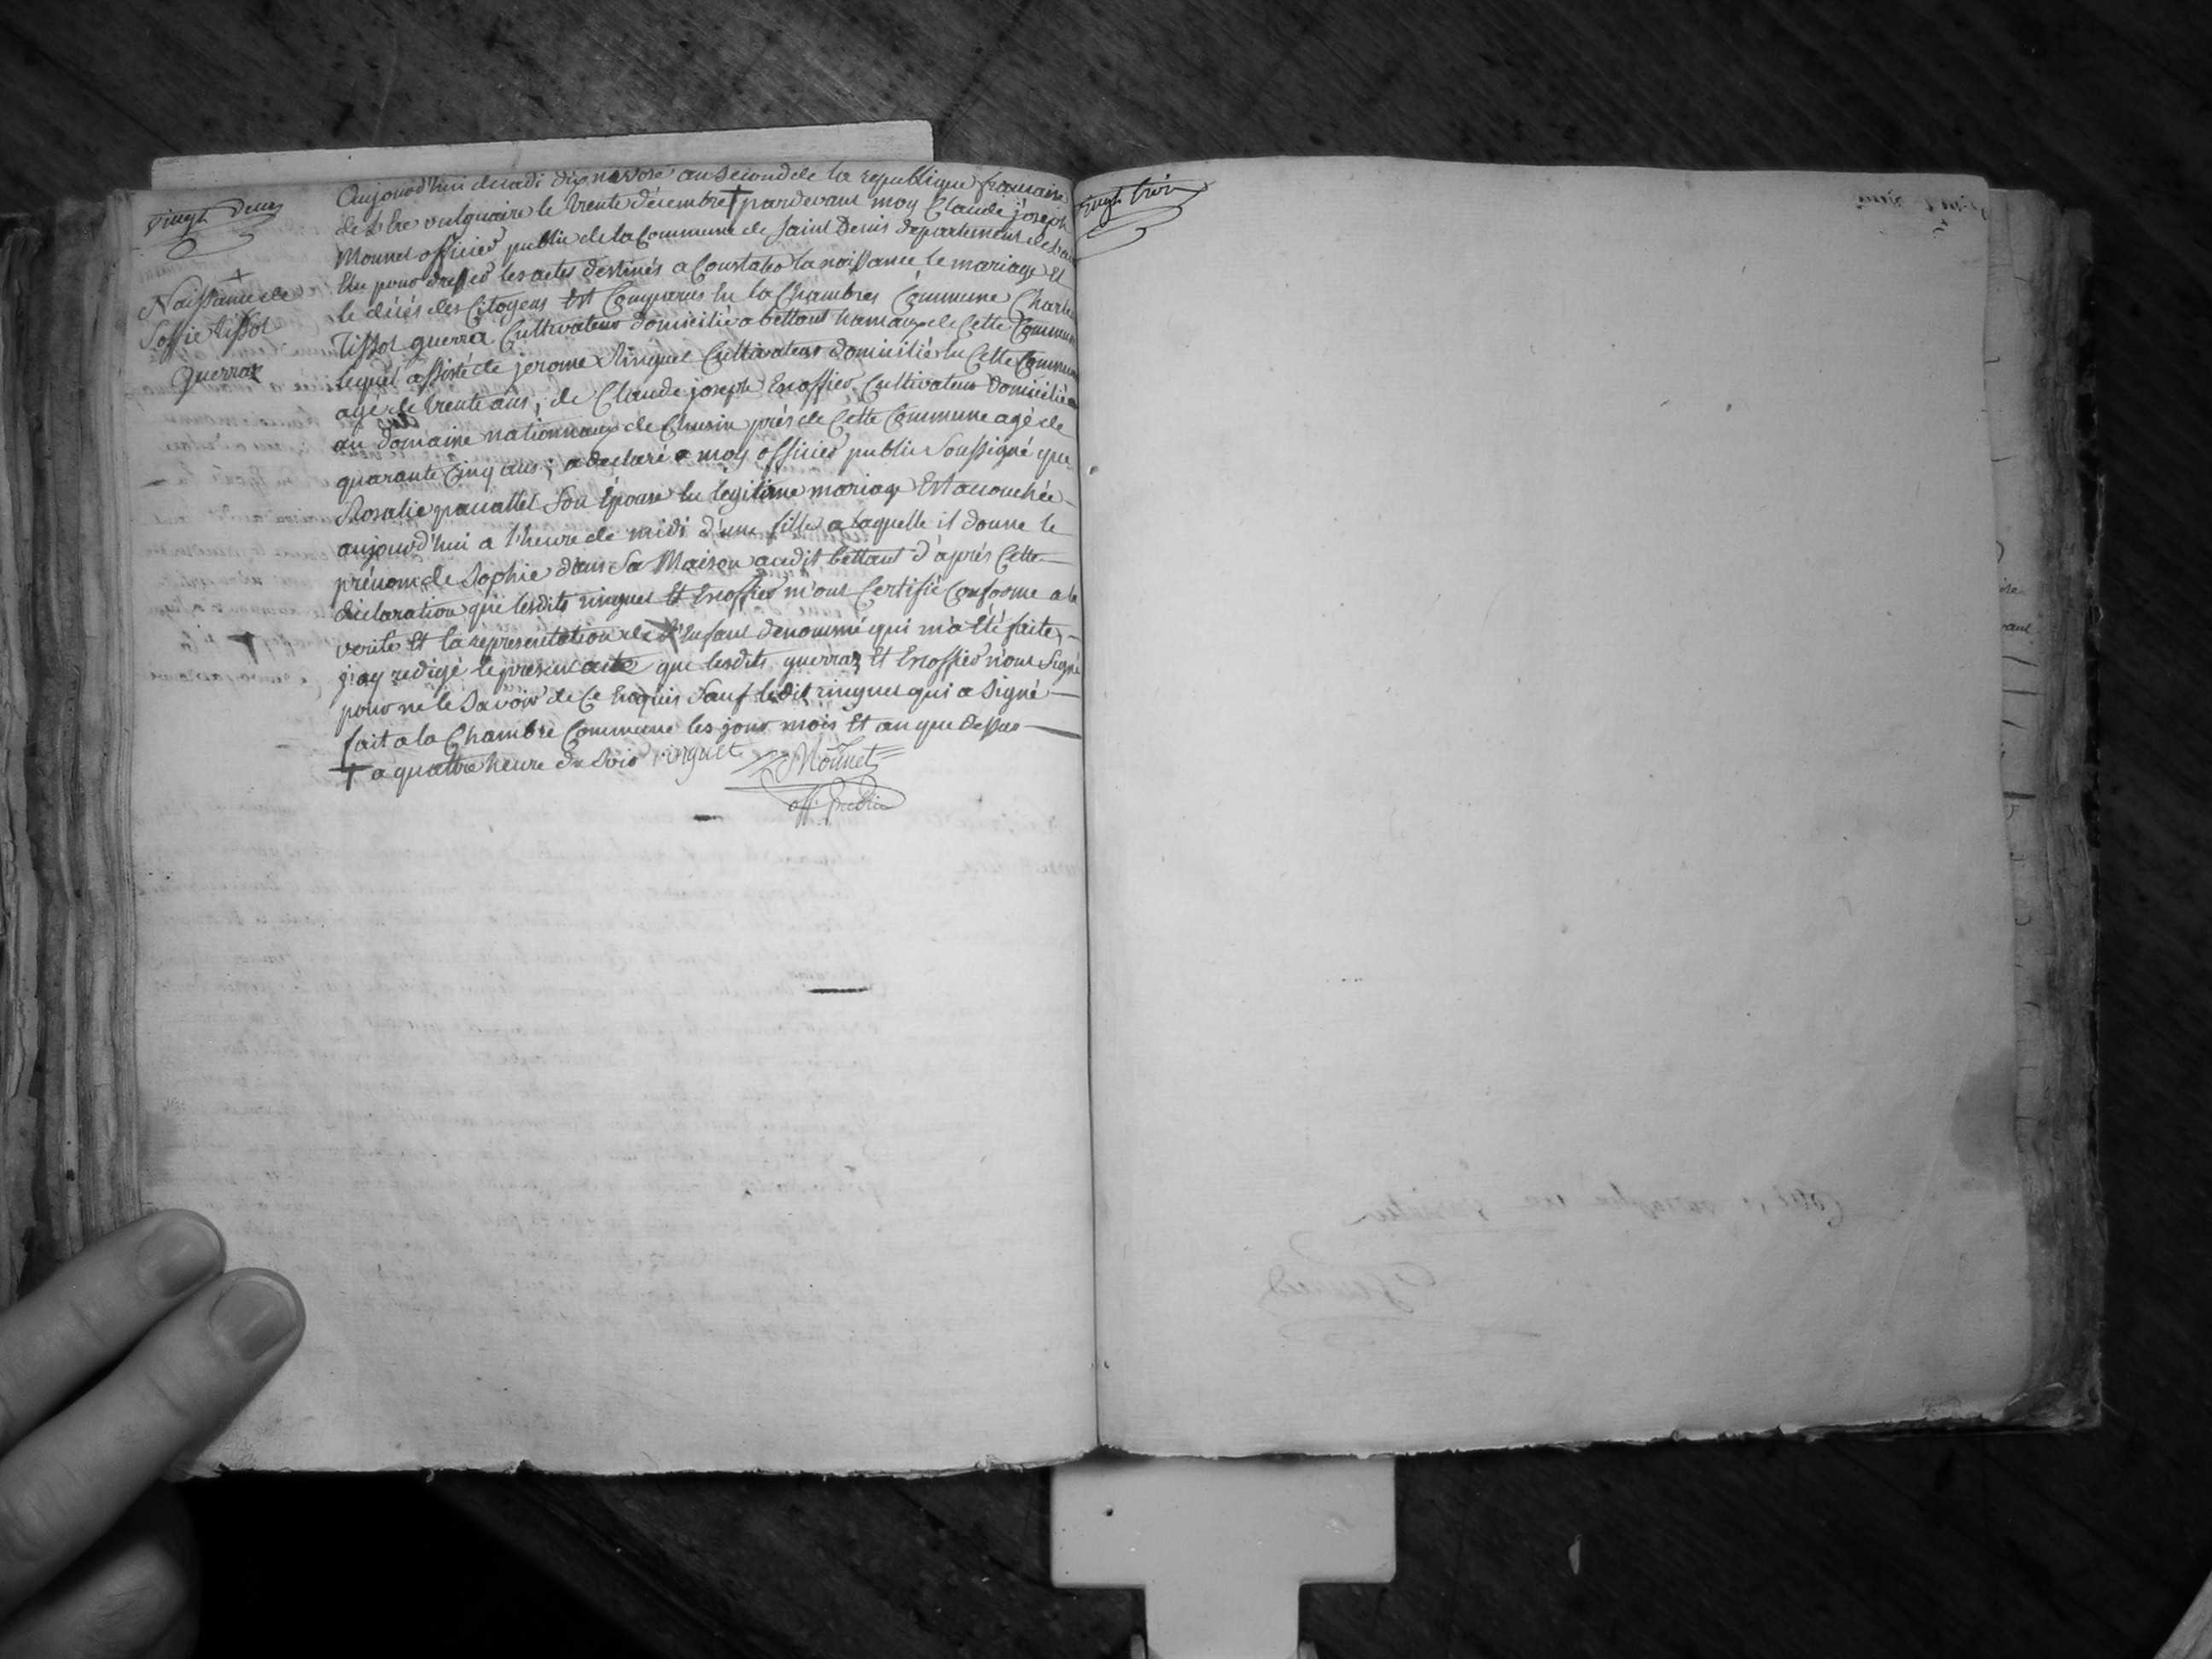 vingt deux
Naissance de
Soffie tissot
Guerraz
Aujourd'hui decadi dix nivose an second de la republique francaise
de l'Ere vulguaire le trente décembre † pardevant moy Claude joseph
Monnet officier public de la Commune de Saint Denis departement de l'ain
Elu pour dresser les actes destinés a Constater la naissance le mariage Et
le décés des Citoyens Est Comparus En la Chambres Commune Charle
Tissot guerra Cultivateur domicilié a bettant hamaux de Cette Commune
lequel assisté de jerome ringuet Cultivateur domicilié En Cette Commune
agé de trente ans, de Claude joseph Escoffier Cultivateur domicilié
au domaine nationnaux de Chusin prés de Cette Commune agé de
quarante Cinq ans; a declaré a moy officier public Soussigné que
Rosalie panattet Son Epouse En legitime mariage Est acouchée
aujourd'hui a l'heure de midi d'une fille a laquelle il donne le
prénom de Sophie dans Sa Maison audit bettant d'aprés Cette
déclaration que lesdits ringuet Et Escoffier m'ont Certifié Conforme a la
verite Et la representation de l'Enfant denommé qui m'a Eté faite,
j'ay redigé le present acte que lesdits guerraz Et Escoffier n'ont Signé
pour ne le Savoir de Ce Enquis Sauf ledit ringuet qui a Signé
fait a la Chambre Commune les jour mois Et an que dessus
† a quattre heure du Soir ringuet Monnet
off. public
vingt trois